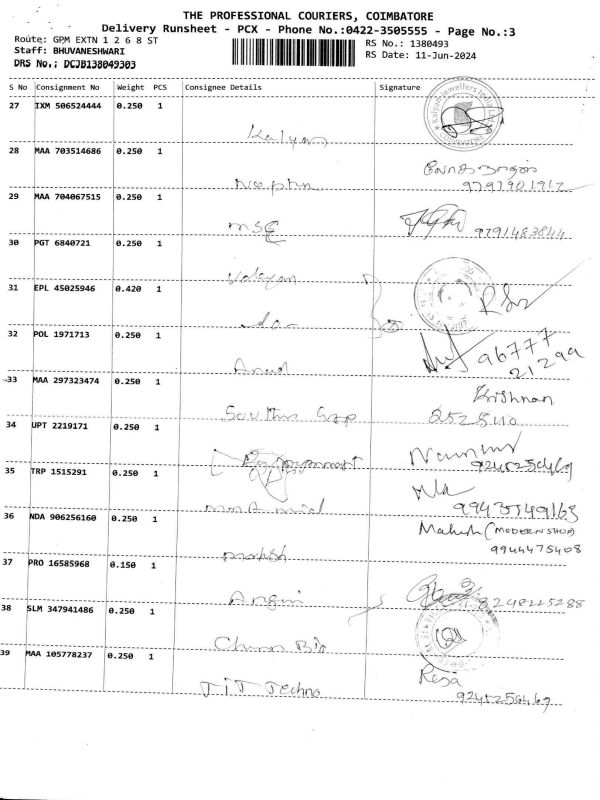 THE PROFESSIONAL COURIERS, COIMBATORE
Delivery Runsheet - PCX - Phone No.:0422-3505555 - Page No.:3
Route: GPM EXTN 1 2 6 8 ST
RS No.: 1380493
Staff: BHUVANESHWARI
RS Date: 11-Jun-2024
DRS No.; DCJB138049303
S No Consignment No Weight PCS Consignee Details Signature
27 IXM 506524444 0.250 1
Kalyan
28 MAA 703514686 0.250 1
9791901912
29 MAA 704067515 0.250 1
MSE 9791483844
30 PGT 6840721 0.250 1
Kalyan
31 EPL 45025946 0.420 1
do
32 POL 1971713 0.250 1
96777
21299
Anand
33 MAA 297323474 0.250 1
Krishnan
South 252540
34 UPT 2219171 0.250 1
9245256469
35 TRP 1515291 0.250 1
9943549163
36 NDA 906256160 0.250 1
Mahesh (MODERN SHOP)
9944475408
Prakash
37 PRO 16585968 0.150 1
8248225288
38 SLM 347941486 0.250 1
39 MAA 105778237 0.250 1
Reja
TIT Techno 9245256469